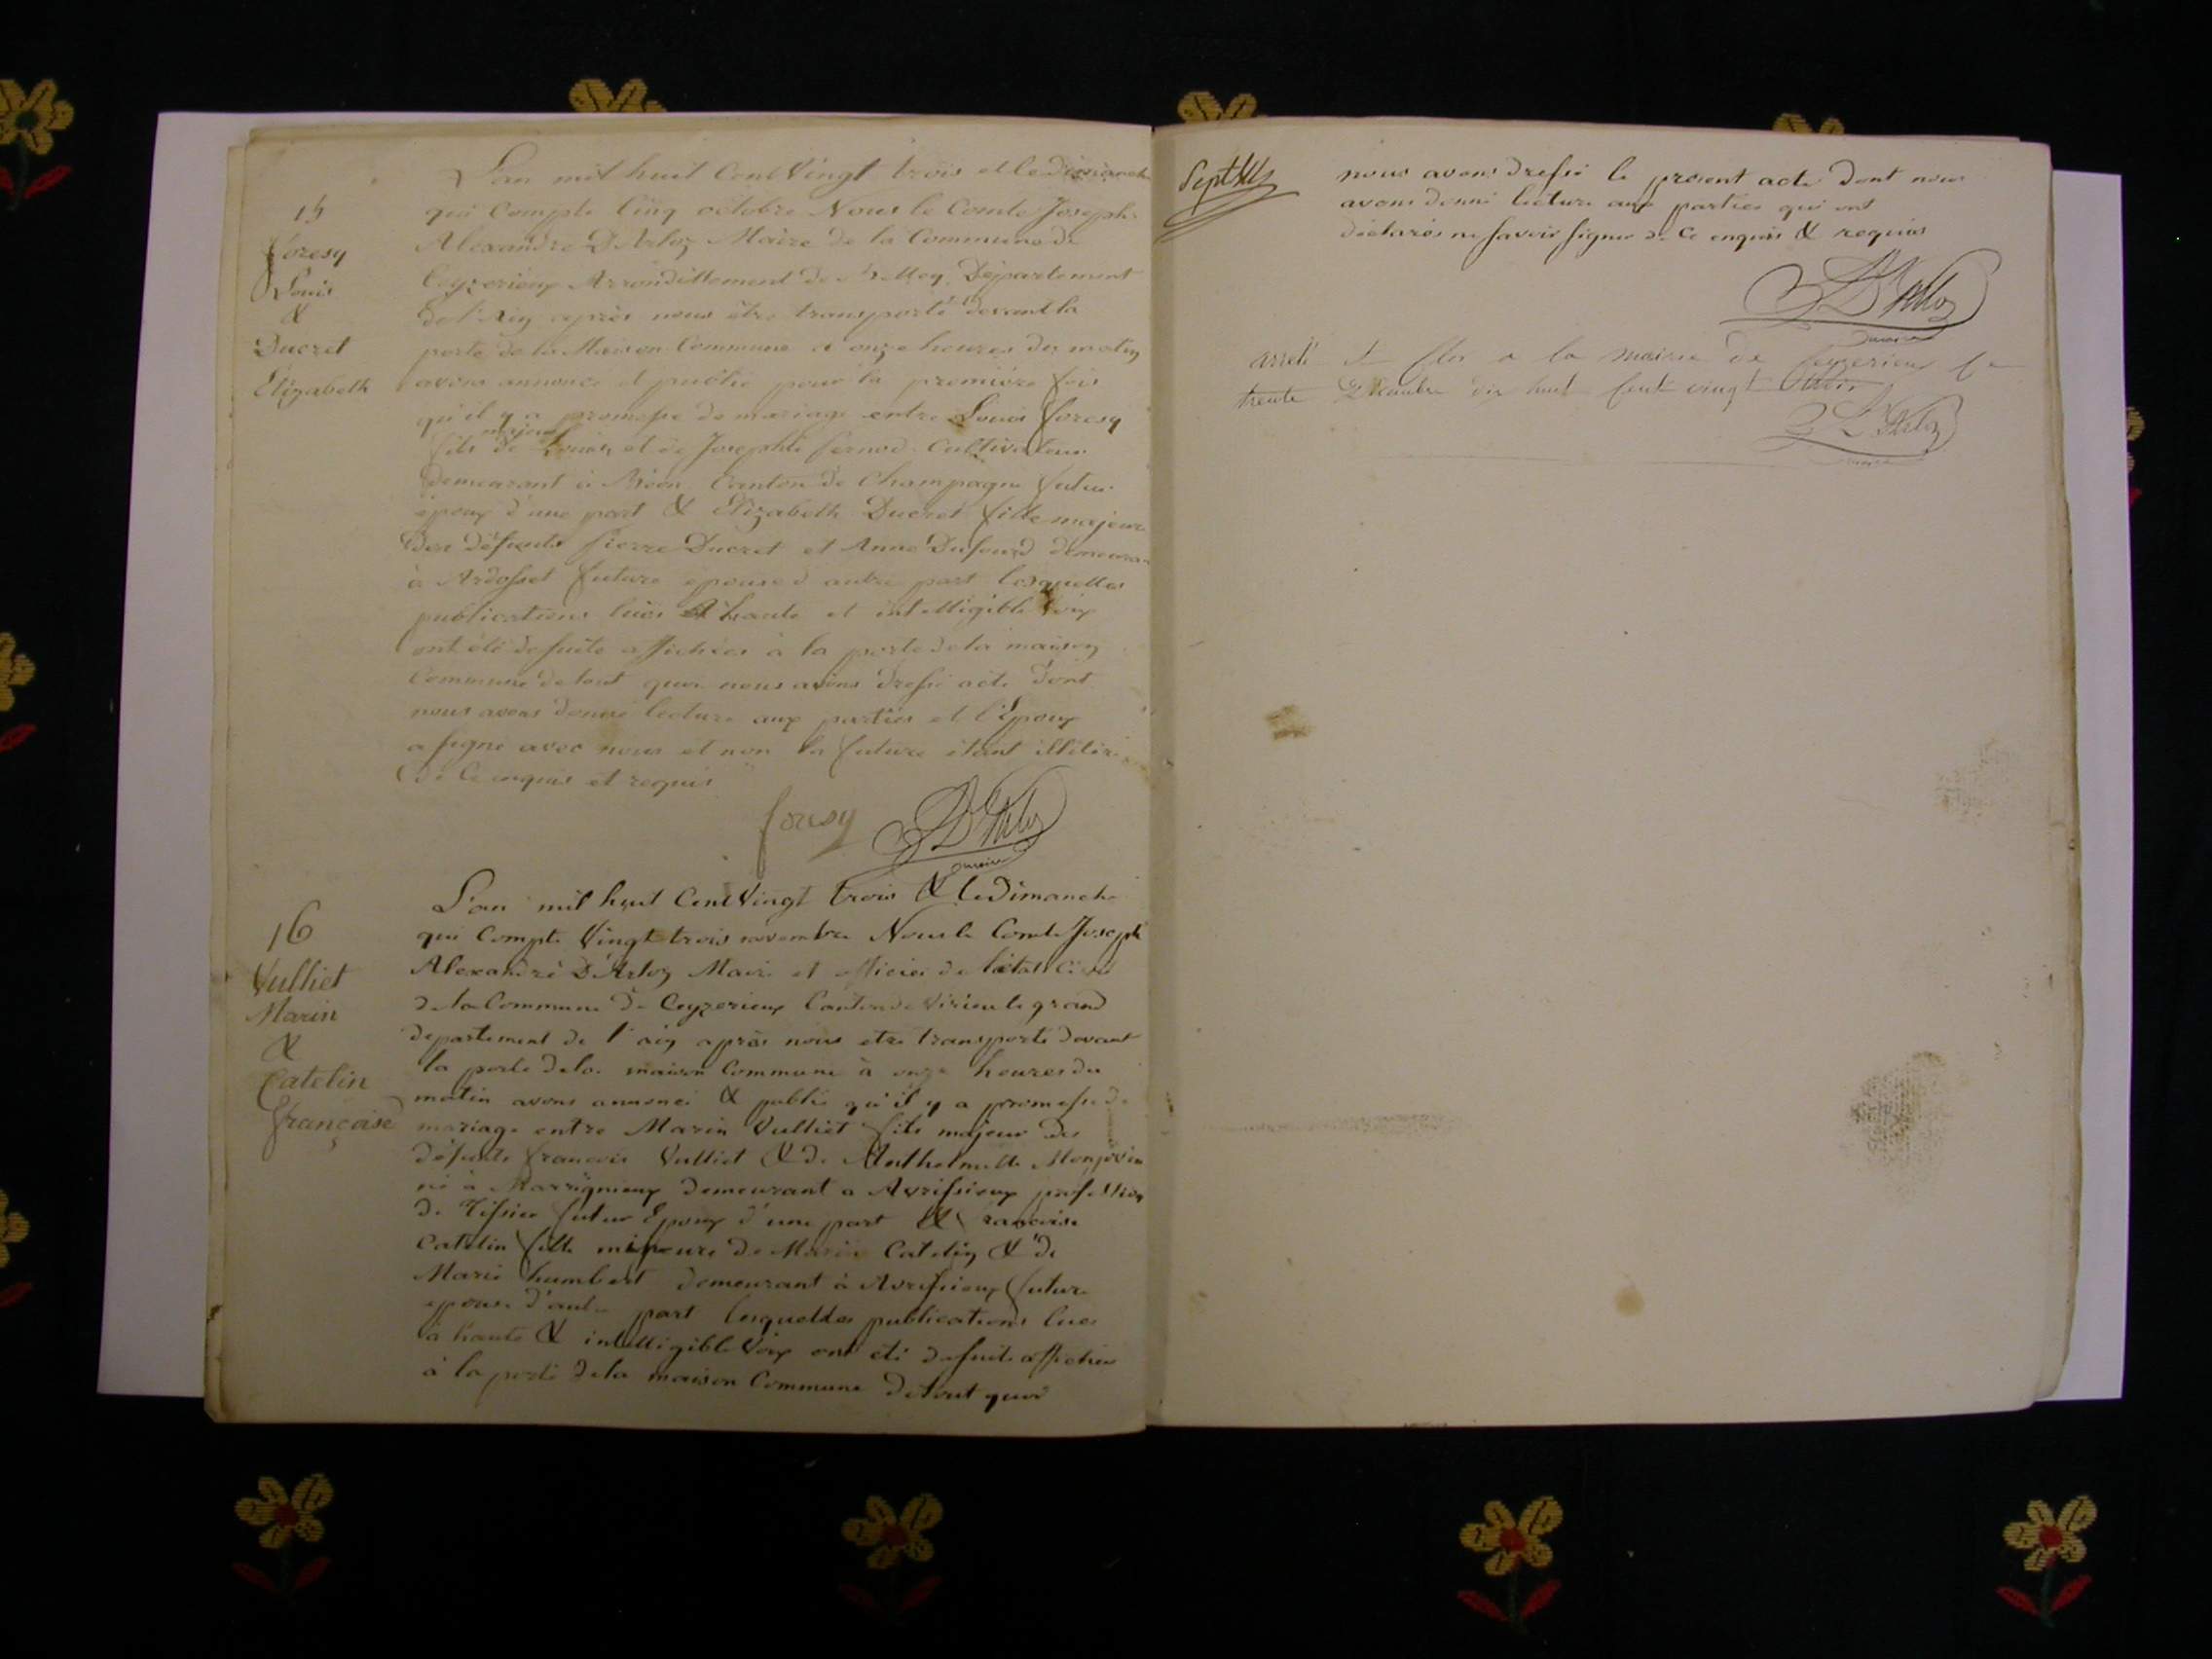 15
foresy
Louis
&
Ducret
Elizabeth
L'an mil huit Cent Vingt trois et le Dimanche
qui Compte Cinq octobre Nous le Comte Joseph
Alexandre D'Arloz Maire de la Commune de
Ceyzerieux Arrondissement de Belley, Département
de l'Ain après nous être transporté devant la
porte de la Maison Commune à onze heures du matin
avons annoncé et publié pour la première fois
qu'il y a promesse de mariage entre Louis foresy
fils majeur de Louis et de Josephte fernod Cultivateur
demeurant à Béon Canton de Champagne futur
époux d'une part & Elizabeth Ducret fille majeure
des défunts Pierre Ducret et Anne Dufourd demeurant
à Ardosset future épouse d'autre part lesquelles
publications lües à haute et intelligible voix
ont été de suite affichées à la porte de la maison
Commune de tout quoi nous avons dressé acte dont
nous avons donné lecture aux parties et l'Epoux
a signé avec nous et non la future étant illitéré
de ce enquis et requis
foresy D'Arloz
maire
16
Vulliet
Marin
&
Catelin
françoise
L'an mil huit Cent Vingt trois & le Dimanche
qui Compte Vingt trois novembre Nous le Comte Joseph
Alexandre D'Arloz Maire et officier de l'état Civil
de la Commune de Ceyzerieux Canton de Virieu le grand
departement de l'ain après nous etre transporté devant
la porte de la maison Commune à onze heures du
matin avons annoncé & publié qu'il y a promesse de
mariage entre Marin Vulliet fils majeur des
défunts françois Vulliet & de Anthelmette Monjovin
né à Marrignieux demeurant a Avrissieux profession
de Tissier futur Epoux d'une part & francoise
Catelin fille mineure de Marin Catelin & de
Marie humbert demeurant à Avrissieux future
epouse d'autre part lesquelles publications lues
à haute & intelligible Voix ont été de suite affichées
à la porte de la maison Commune de tout quoi
Sept
nous avons dressé le present acte dont nous
avons donné lecture aux parties qui ont
déclarés ne savoir signer de Ce enquis & requis
D'Arloz
maire
arrêté & clos a la mairie de Ceyzerieux le
trente Décembre dix huit Cent vingt trois
D'Arloz
maire